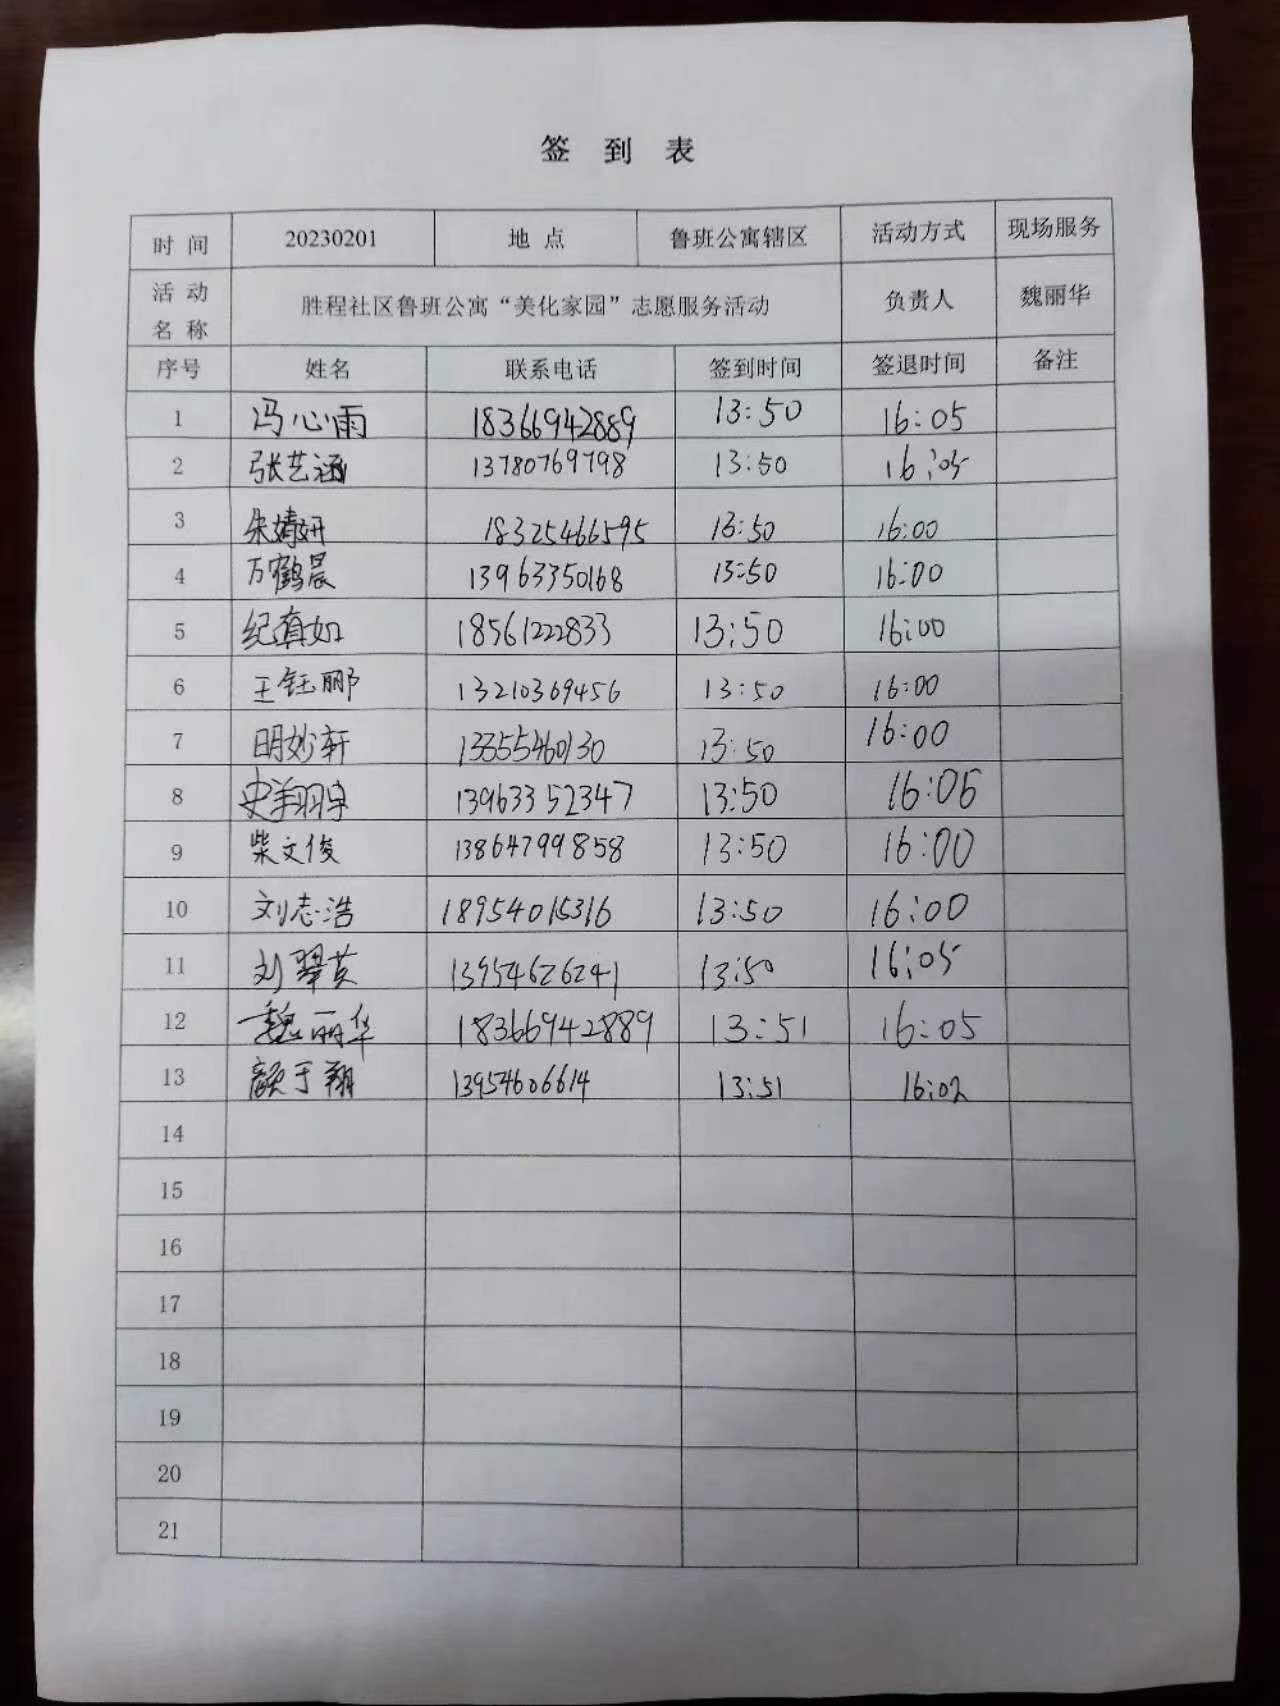 签 到 表
时 间 20230201 地 点 鲁班公寓辖区 活动方式 现场服务
活 动 名 称 胜程社区鲁班公寓“美化家园”志愿服务活动 负责人 魏丽华
序号 姓名 联系电话 签到时间 签退时间 备注
1 冯心雨 18366942889 13:50 16:05
2 张艺涵 13780769798 13:50 16:05
3 朱婧妍 18325466595 13:50 16:00
4 万鹤晨 13963350168 13:50 16:00
5 纪真如 18561222833 13:50 16:00
6 王钰郦 13210369456 13:50 16:00
7 明妙轩 13355460130 13:50 16:00
8 史翔宇 13963352347 13:50 16:05
9 柴文俊 13864799858 13:50 16:00
10 刘志浩 18954015316 13:50 16:00
11 刘翠英 13954626241 13:50 16:05
12 魏丽华 18366942889 13:51 16:05
13 颜于翔 13954606614 13:51 16:02
14
15
16
17
18
19
20
21